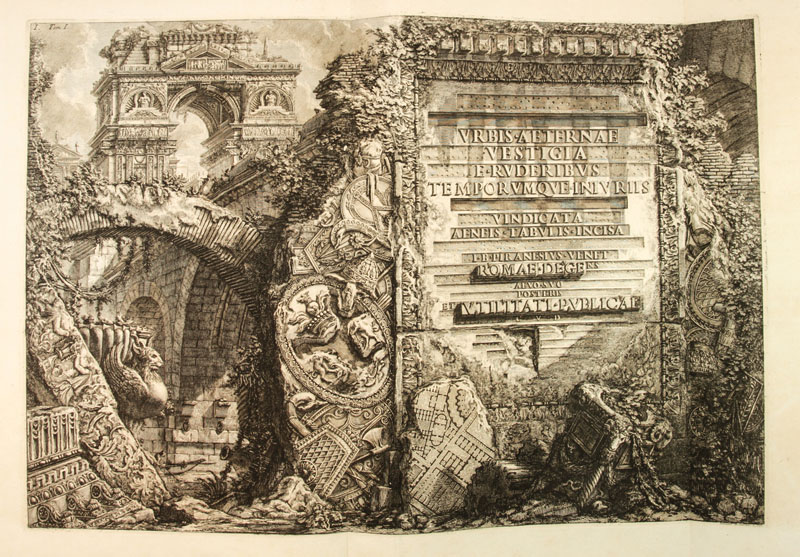 2. Tom. I.
VRBIS·AETERNAE
VESTIGIA
E·RVDERIBVS
TEMPORVMQVE·INIVRIIS
VINDICATA
AENEIS·TABVLIS·INCISA
I·B·PIRANESIVS·VENET
ROMAE·DEGENS
AEVO·SVO
POSTERIS
ET VTILITATI·PVBLICAE